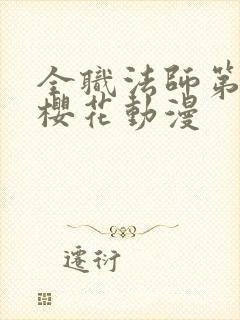 全職法師第
櫻花動漫
遷衍